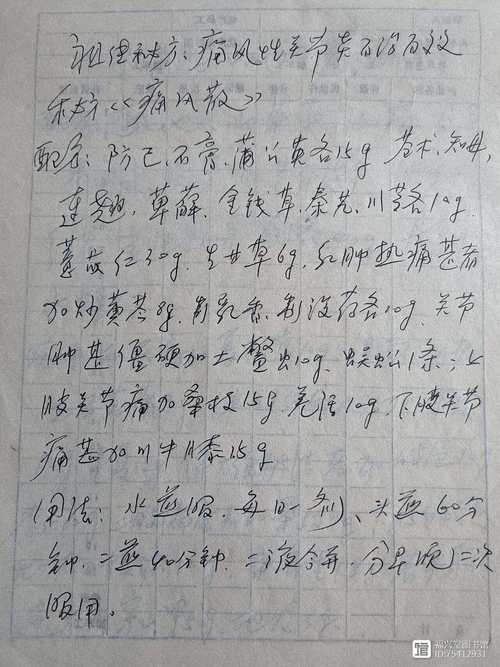 祖传秘方:痛风性关节炎百治百效
秘方《《痛风散》》
配方:防己、石膏、蒲公英各15g 苍术、知母,
连翘、草薢、金钱草、秦艽、川芎各10g.
薏苡仁30g、生甘草6g, 红肿热痛甚者
加炒黄芩8g、制乳香、制没药各10g、关节
肿甚僵硬加土鳖虫10g、蜈蚣1条;上
肢关节痛加桑枝15g、羌活10g、下肢关节
痛甚加川牛膝15g
(用法:水煎服、每日一剂)、头煎60分
钟、二煎40分钟、二液合并、分早晚二次
服用。
福兴堂图书馆
ID:75412931